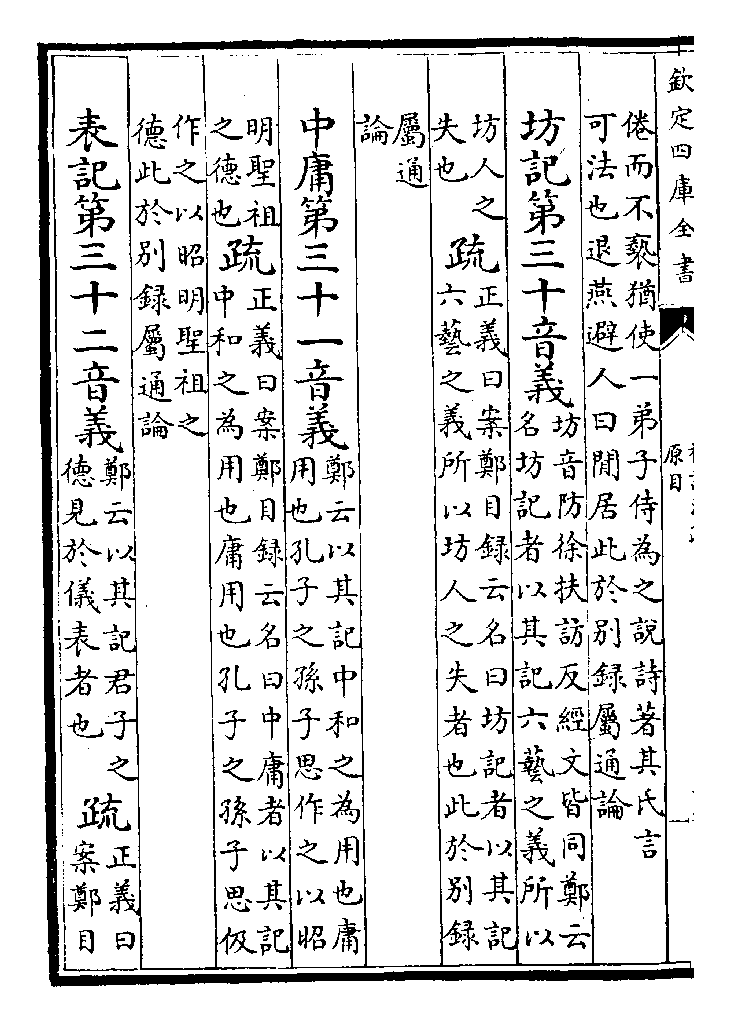 欽定四庫全書
原目
倦而不褻猶使一弟子侍為之說詩著其氏言
可法也退燕避人曰閒居此於別録屬通論
坊記第三十音義
坊音防徐扶訪反經文皆同鄭云
名坊記者以其記六藝之義所以
坊人之
失也
疏
正義曰案鄭目録云名曰坊記者以其記
六藝之義所以坊人之失者也此於別録
屬通
論
中庸第三十一音義
鄭云以其記中和之為用也庸
用也孔子之孫子思作之以昭
明聖祖
之德也
疏
正義曰案鄭目録云名曰中庸者以其記
中和之為用也庸用也孔子之孫子思伋
作之以昭明聖祖之
德此於別録屬通論
表記第三十二音義
鄭云以其記君子之
德見於儀表者也
疏
正義曰
案鄭目